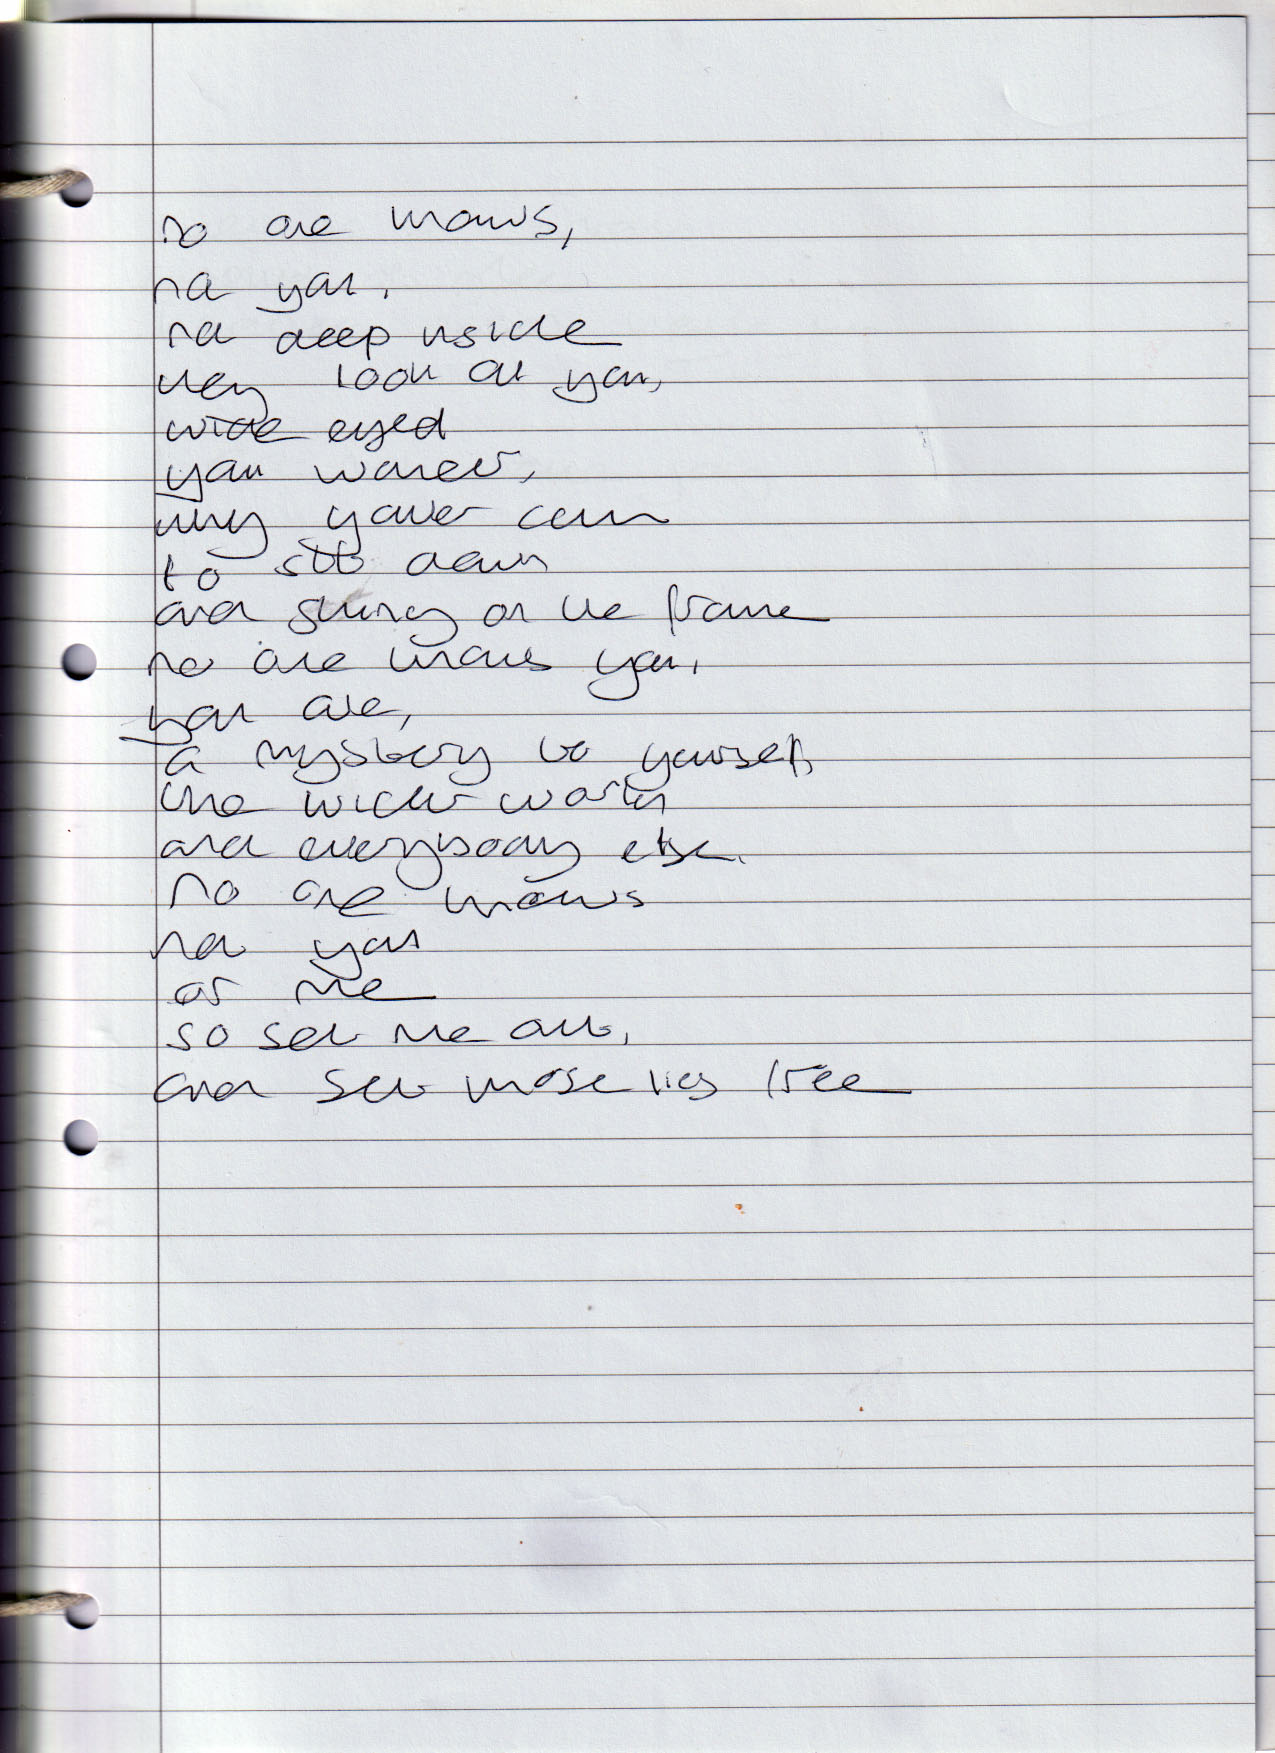 no one knows,
not you.
not deep inside
they look at you,
wide eyed
you wonder,
why you've come
to sit down
and on the frame
no one knows you,
you are,
a mystery to yourself
the wider world
and everybody else.
no one knows
not you
or me
so set me out,
and set those free